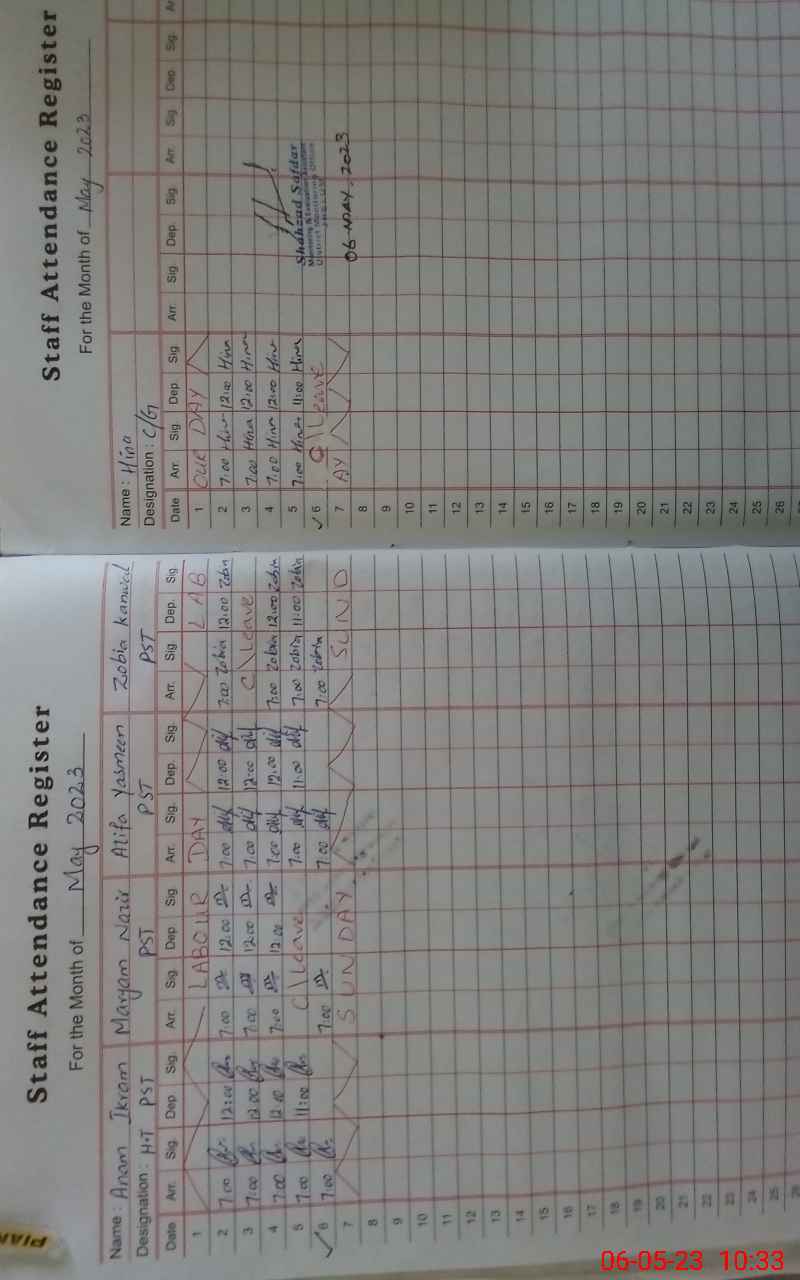 Staff Attendance Register
For the Month of May 2023
Name : Anam Ikram Maryam Nazir Atifa Yasmeen Zobia Kanwal
Designation : H.T PST PST PST PST
Date Arr. Sig. Dep Sig. Arr. Sig. Dep Sig. Arr. Sig. Dep. Sig. Arr. Sig. Dep. Sig.
1 LABOUR DAY LAB
2 7:00 12:00 7:00 12:00 7:00 12:00 7:00 Zobia 12:00 Zobia
3 7:00 12:00 7:00 12:00 7:00 12:00 C\Leave
4 7:00 12:00 7:00 12:00 7:00 12:00 7:00 Zobia 12:00 Zobia
5 7:00 11:00 C\Leave 7:00 11:00 7:00 Zobia 11:00 Zobia
6 7:00 7:00 7:00 7:00 Zobia
7 SUNDAY SUND
8
9
10
11
12
13
14
15
16
17
18
19
20
21
22
23
24
25
26
Staff Attendance Register
For the Month of May 2023
Name : Hina
Designation : C/G
Date Arr. Sig. Dep. Sig. Arr. Sig. Dep. Sig. Arr. Sig. Dep. Sig. Ar
1 OUR DAY
2 7:00 Hina 12:00 Hina
3 7:00 Hina 12:00 Hina
4 7:00 Hina 12:00 Hina
5 7:00 Hina 11:00 Hina
6 C\Leave
7 AY
8
9
10
11
12
13
14
15
16
17
18
19
20
21
22
23
24
25
26
Shahzad Safdar
Monitoring & Evaluation Assistant
District Monitoring Office
06-MAY-2023
PIAN
06-05-23 10:33